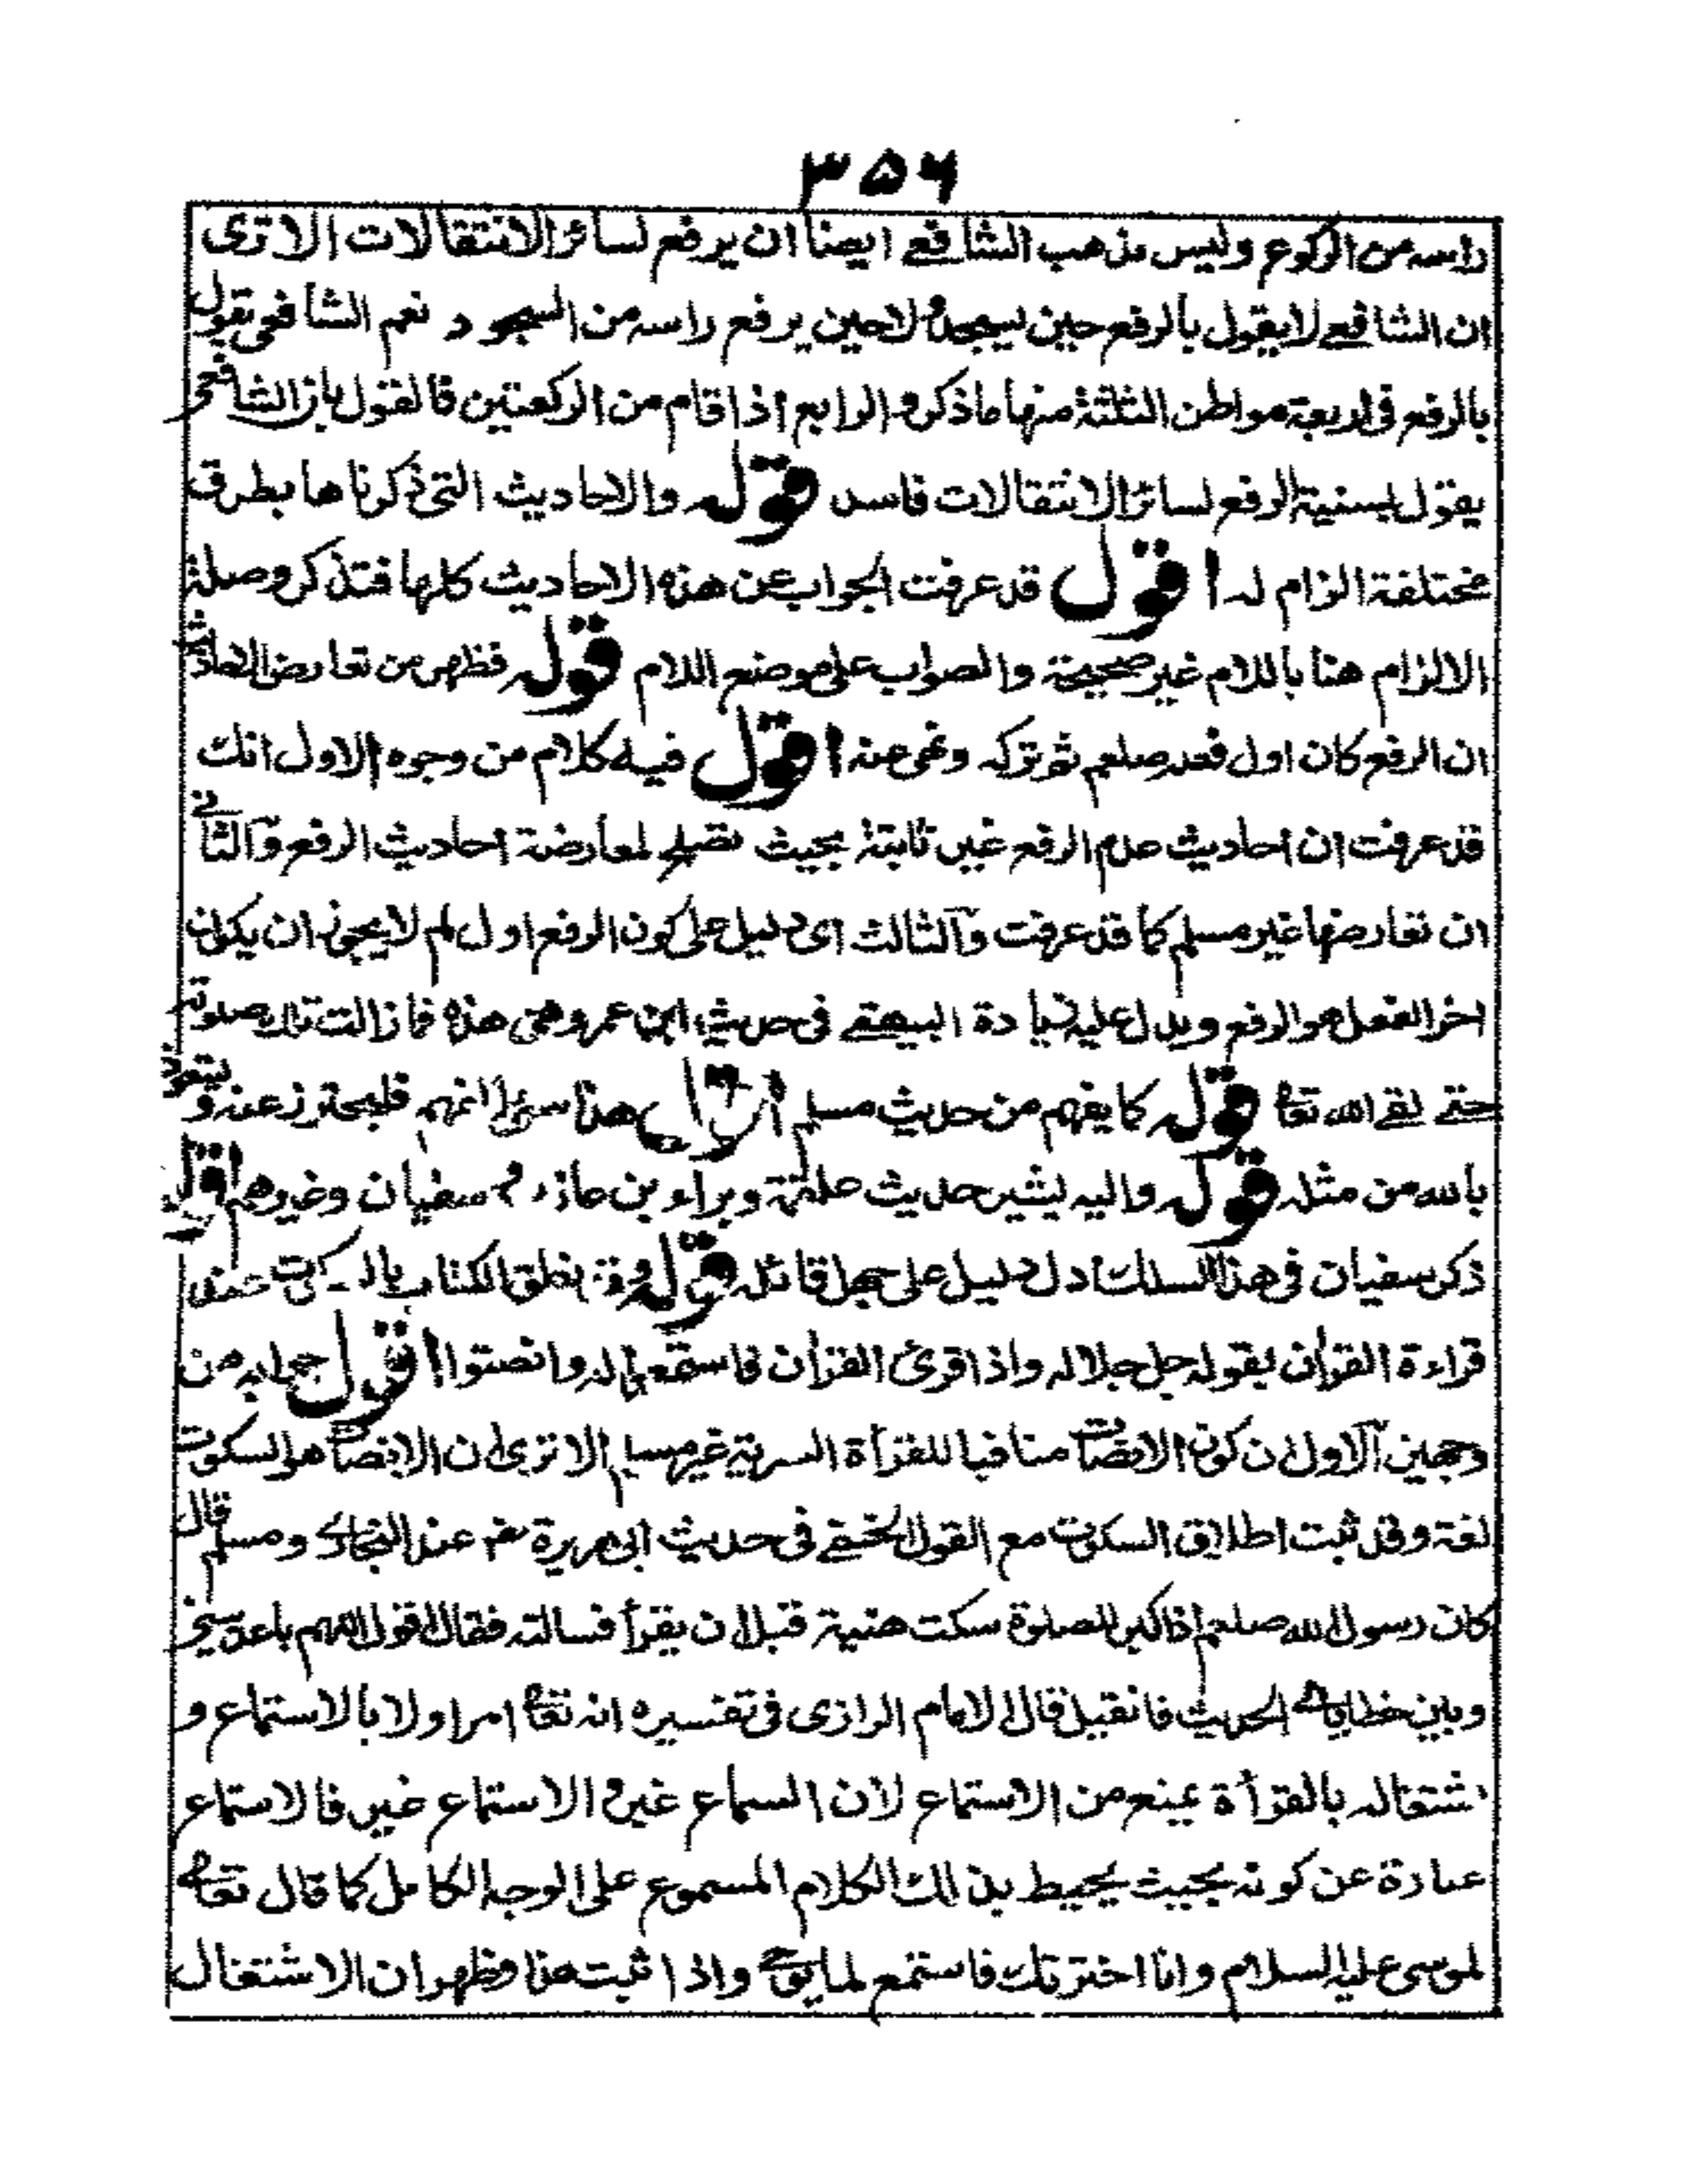 ۳۵۶
راسه من الركوع وليس مذهب الشافعے ايضا ان يرفع لسائر الانتقالات الا ترى
ان الشافعے لا يقول بالرفع حين يسجد ولا حين يرفع راسه من السجود نعم الشافعى يقول
بالرفع فى اربعة مواطن الثلثة منها ما ذكر والرابع اذا قام من الركعتين فالقول بان الشافعى
يقول بسنية الرفع لسائر الانتقالات فاسد قوله والاحاديث التى ذكرناها بطرق
مختلفة الزام له اقول قد عرفت الجواب عن هذه الاحاديث كلها فتذكر وصلة
الالزام هنا باللام غير صحيحة والصواب على موضع اللام قوله فظهر من تعارض الاحاديث
ان الرفع كان اول فعله صلعم ثم تركه ونهى عنه اقول فيه كلام من وجوه الاول انك
قد عرفت ان احاديث عدم الرفع غير ثابتة بحيث تصلح لمعارضة احاديث الرفع والثانے
ان تعارضها غير مسلم كما قد عرفت والثالث اى دليل على كون الرفع اول لم لا يجوز ان يكون
اخر الفعل هو الرفع ويدل عليه زيادة البيهقے فى حديث ابن عمر وهى هذه فما زالت تلك صلوته
حتے لقے الله تعا قوله كما يفهم من حديث مسلم اقول هذا سوء الفهم فليحترز عنه وليتعوذ
بالله من مثله قوله واليه يشير حديث علقمة وبراء بن عازب وسفيان وغيرهم اقول
ذكر سفيان فى هذا السلك ادل دليل على جهل قائله قوله وقد نطق الكتاب بالسكوت عند
قراءة القران بقوله جل جلاله واذا قرئ القران فاستمعوا له وانصتوا اقول جوابه من
وجهين الاول ان كون الانصات منافيا للقرأة السرية غير مسلم الا ترى ان الانصات هو السكوت
لغة وقد ثبت اطلاق السكوت مع القول الخفے فى حديث ابى هريرة عند البخارى ومسلم قال
كان رسول الله صلعم اذا كبر للصلوة سكت هنية قبل ان يقرأ فسالته فقال اقول اللهم باعد بينى
وبين خطاياى الحديث فان قيل قال الامام الرازى فى تفسيره انه تعا امر اولا بالاستماع و
اشتغاله بالقرأة يمنع من الاستماع لان السماع غير والاستماع غير فالاستماع
عبارة عن كونه بحيث يحيط بذلك الكلام المسموع على الوجه الكامل كما قال تعا
لموسى عليه السلام وانا اخترتك فاستمع لما يوحے واذا ثبت هذا وظهر ان الاشتغال